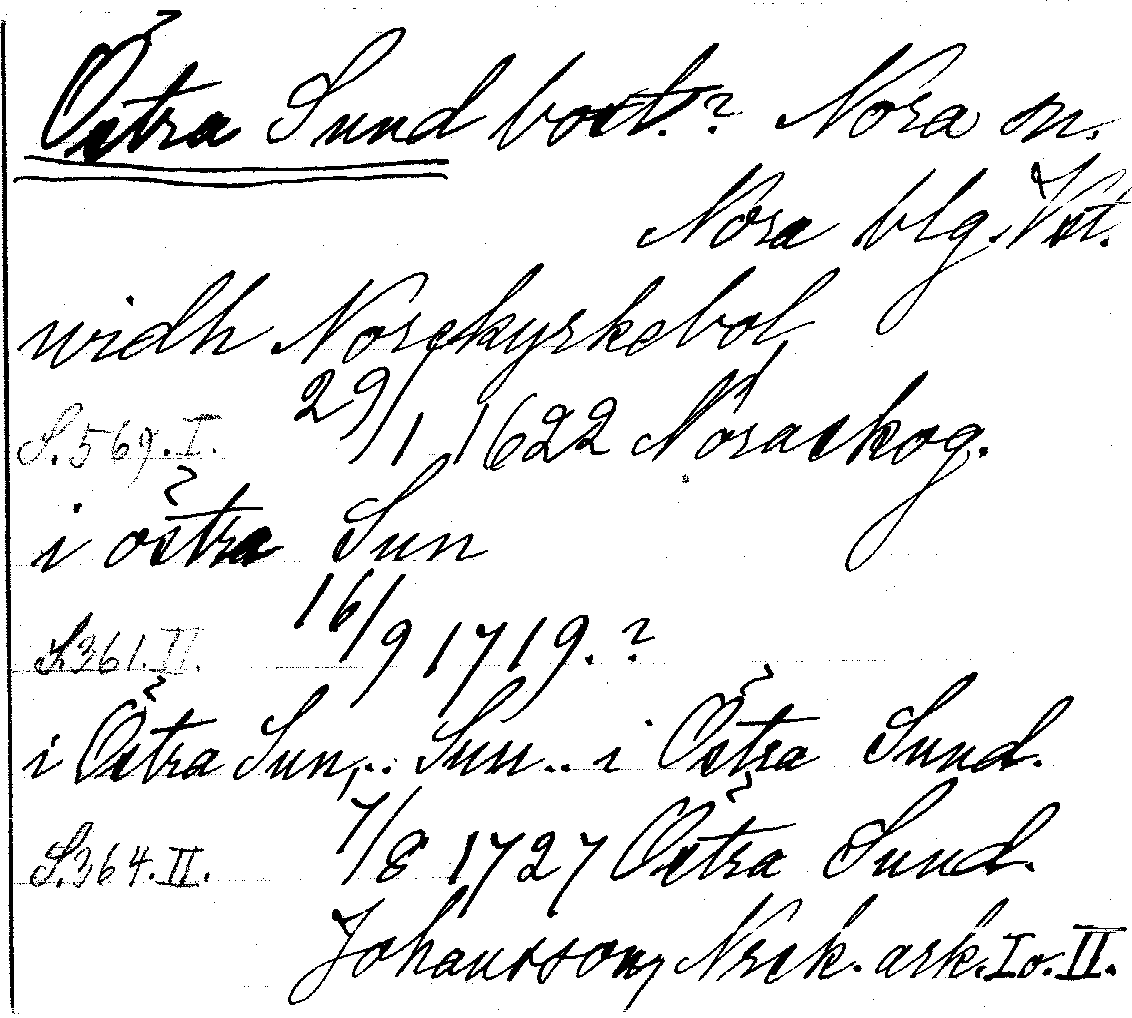 Östra Sund bost.? Nora sn.
Nora blg. Vst.
widh Norsekyrkebol
S. 569. I. 29/1 1622 Noraskog.
i östra Sun
S. 361. II. 16/9 1719.?
i Östra Sun,.. Sun.. i Östra Sund.
S. 364. II. 7/8 1727 Östra Sund.
Johansson, Nrsk. ark. I o. II.